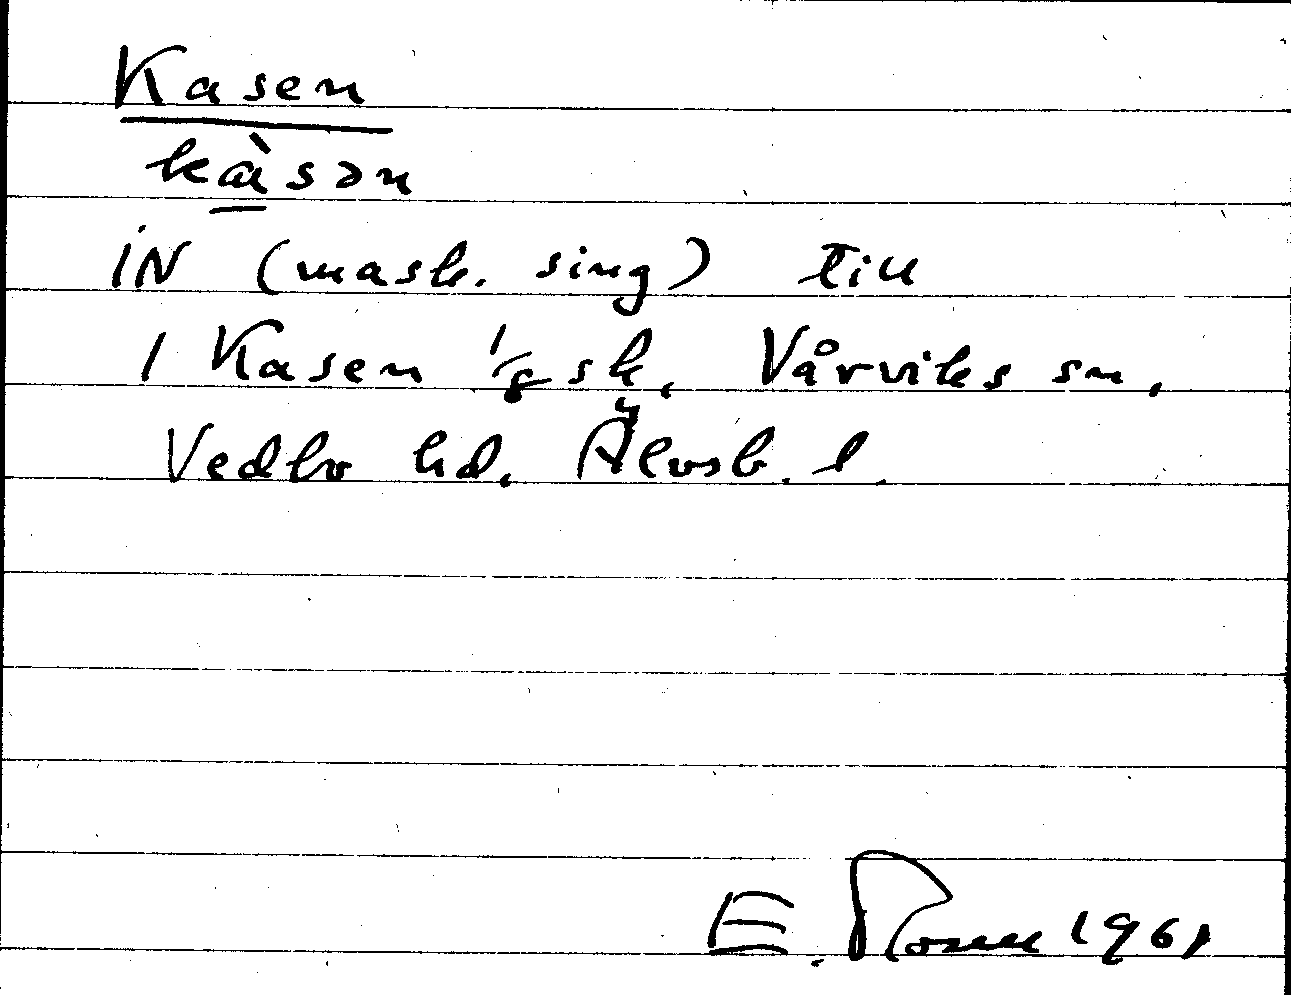 Kasen
kàsən
IN (mask. sing) till
1 Kasen 1/8 sk. Vårviks sn.
Vedbo hd. Älvsb. l.
E. Rosell 1961